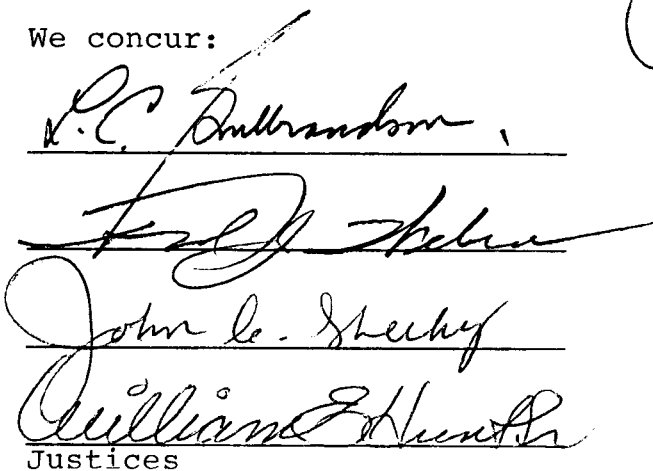 We concur:
L.C. Gulbrandson
Fred J. Weber
John C. Sheehy
William E. Hunt Sr
Justices